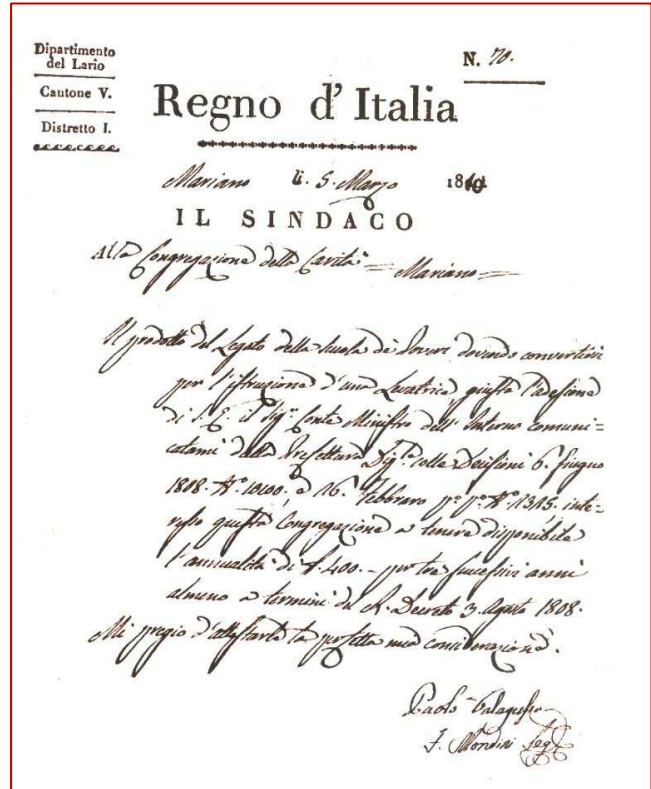 Dipartimento
del Lario
Cantone V.
Distretto I.
N. 70.
Regno d'Italia
Mariano li 5. Marzo 1810
IL SINDACO
Alla Congregazione della Carità = Mariano =
Il prodotto del Legato della Scuola de' Poveri dovendo convertirsi
per l'istruzione d'una Levatrice, giusta l'adesione
di S. E. il Sig.r Conte Ministro dell'Interno comuni=
catami dalla Prefettura colle Decisioni 6. Giugno
1808. N.° 10100, e 16. Febbraro p.° p.° N.° 1315. inte=
resso questa Congregazione a tenere disponibile
l'annualità di £. 400. - per tre successivi anni
almeno a termini del R. Decreto 3. Agosto 1808.
Mi pregio d'attestarle la perfetta mia considerazione.
Paolo
F. Mondini Seg.